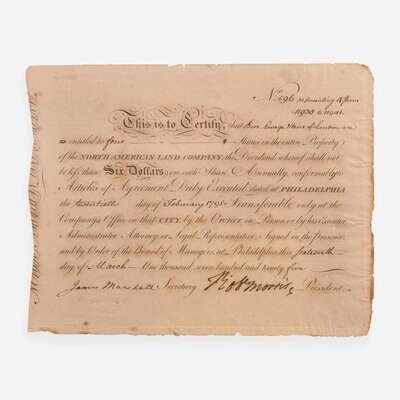 No. 596
This is to Certify, that
is entitled to four Shares in the entire Property
of the NORTH AMERICAN LAND COMPANY; the Dividend whereof shall not
be less than Six Dollars on each Share Annually, conformably to
Articles of Agreement Duly Executed dated at PHILADELPHIA
the twentieth day of February 1795 Transferable only at the
Company's Office in that CITY, by the Owner in Person or by his Executor
Administrator Attorney or Legal Representative Signed in the presence
and by Order of the Board of Managers, at Philadelphia, this sixteenth
day of March One thousand seven hundred and ninety five
James Marshall Secretary Robt Morris President